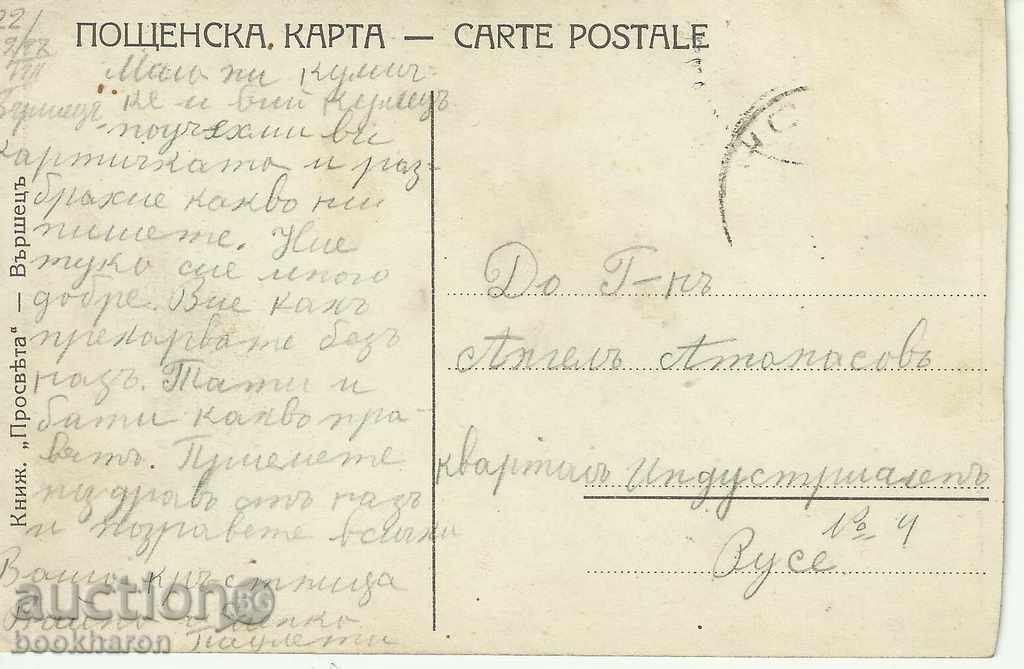 ПОЩЕНСКА КАРТА — CARTE POSTALE
22/
VIII
Мило ни кумич-
ке и вий кумецъ
получхми ви
картичката и раз-
брахме какво ни
пишете. Ние
тука сме много
добре. Вие какъ
прекарвате безъ
насъ. Тати и
бати какво пра-
вятъ. Приемете
поздравъ отъ насъ
и поздравете всички
Ваша кръстница
Паулети
Книж. „Просвѣта“ — Вършецъ
До Г-нъ
Ангелъ Атанасовъ
кварталъ Индустриаленъ
№ 4
Русе
auction BG
bookharon